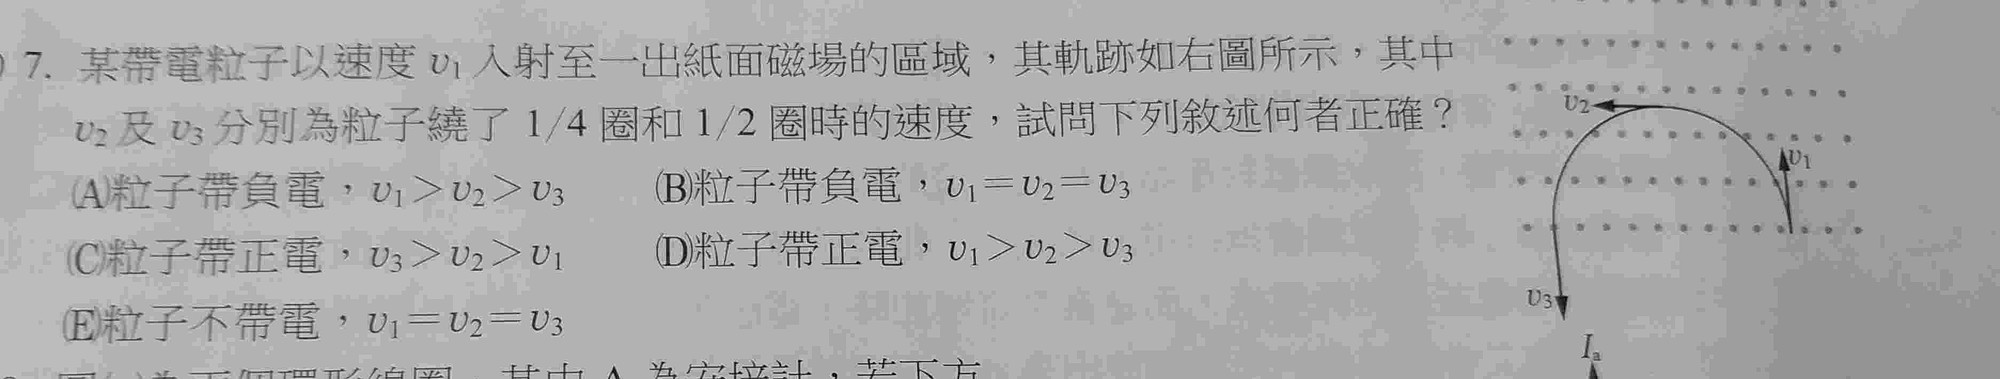 ) 7. 某帶電粒子以速度 v₁ 入射至一出紙面磁場的區域，其軌跡如右圖所示，其中
v₂ 及 v₃ 分別為粒子繞了 1/4 圈和 1/2 圈時的速度，試問下列敘述何者正確？
(A)粒子帶負電，v₁＞v₂＞v₃ (B)粒子帶負電，v₁＝v₂＝v₃
(C)粒子帶正電，v₃＞v₂＞v₁ (D)粒子帶正電，v₁＞v₂＞v₃
(E)粒子不帶電，v₁＝v₂＝v₃
v₂
v₁
v₃
Iₐ